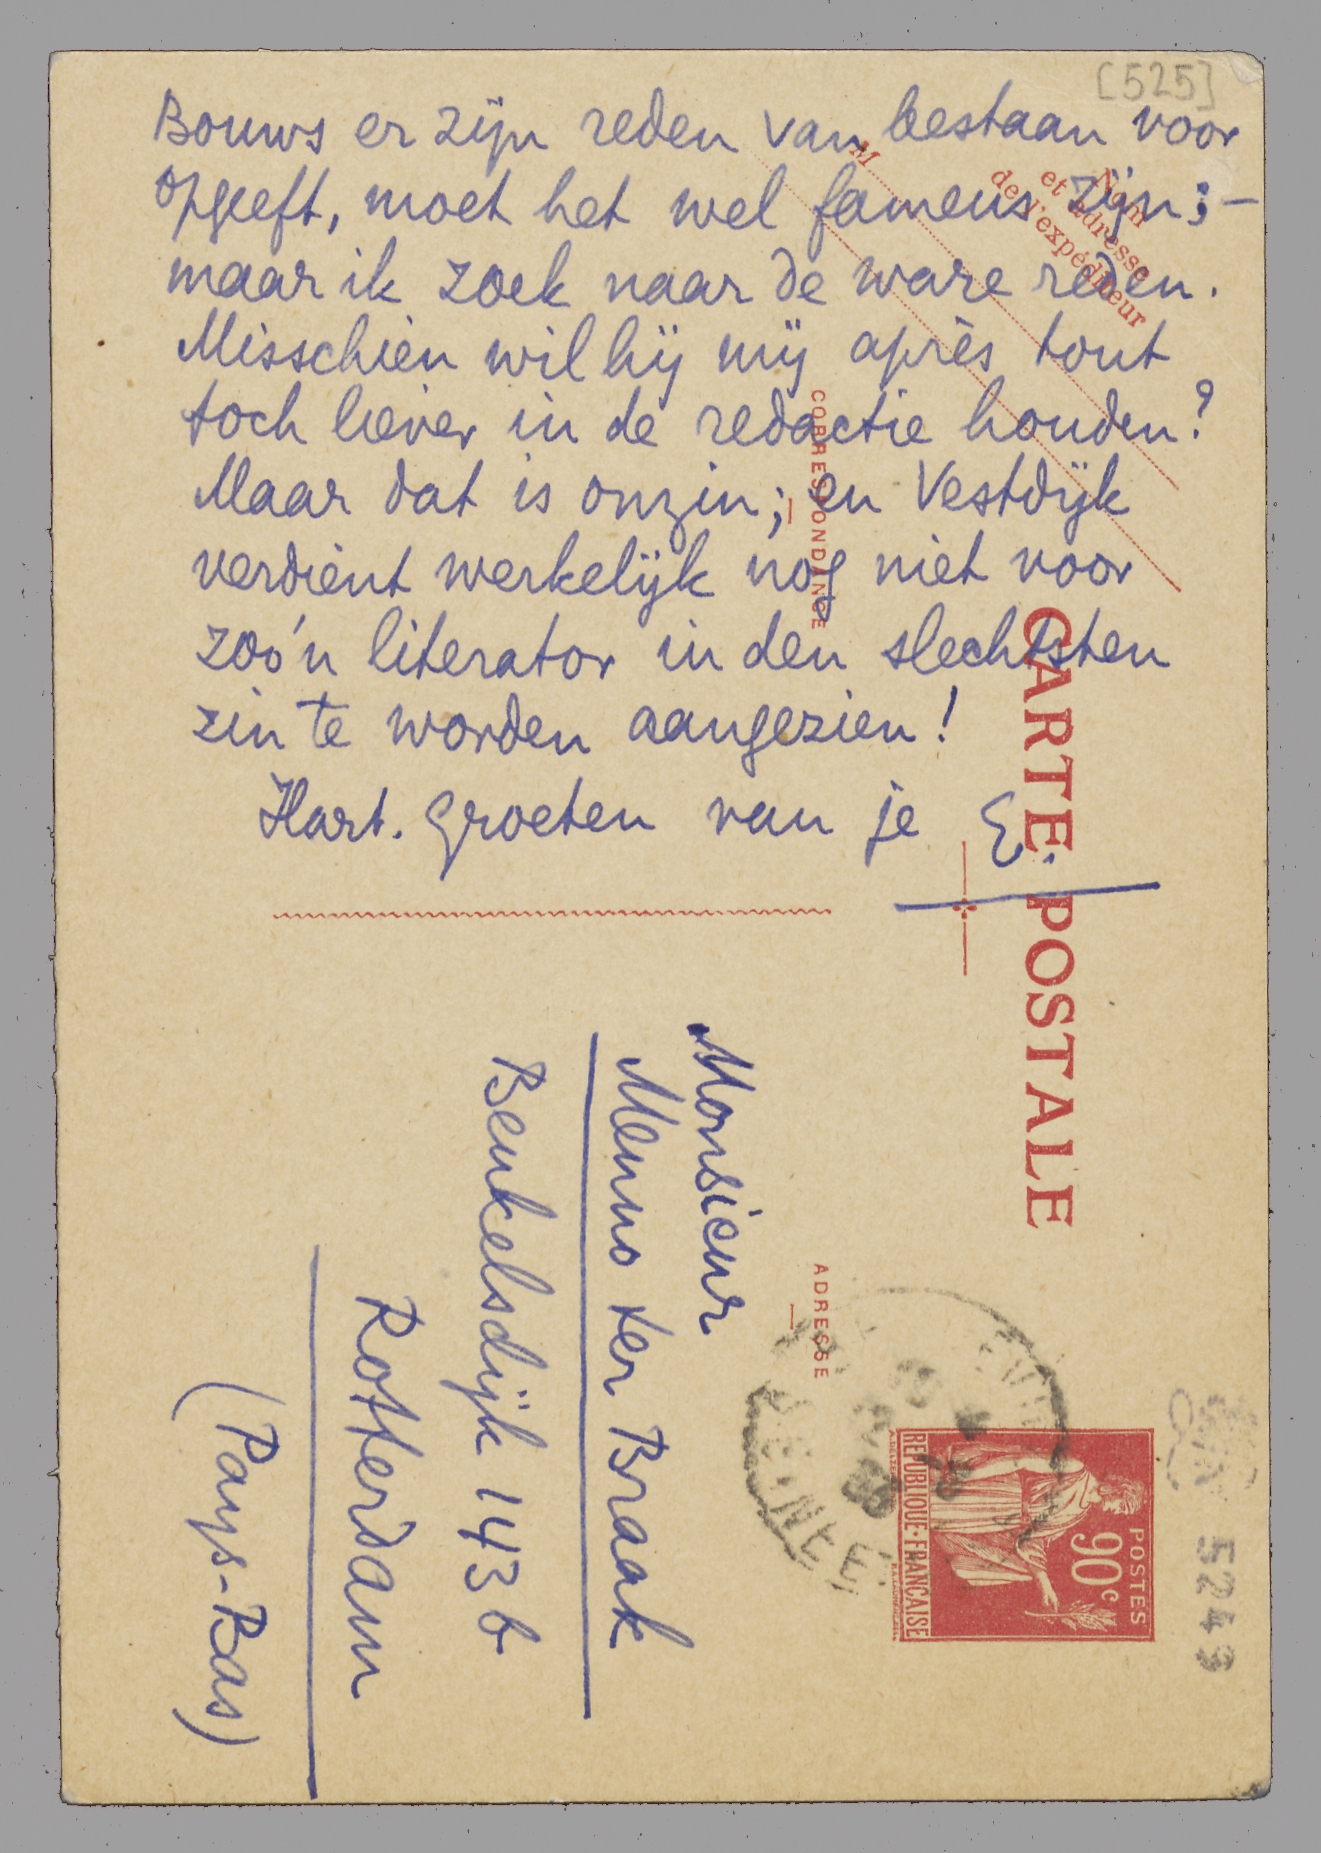 [525]
Bouws er zijn reden van bestaan voor
opgeeft, moet het wel fameus zijn; –
maar ik zoek naar de ware reden.
Misschien wil hij mij après tout
toch liever in de redactie houden?
Maar dat is onzin; en Vestdijk
verdient werkelijk nog niet voor
zoo'n literator in den slechtsten
zin te worden aangezien!
Hart. groeten van je E.
M
Nom
et adresse
de l'expéditeur
CARTE POSTALE
CORRESPONDANCE
ADRESSE
Monsieur
Menno ter Braak
Beukelsdijk 143b
Rotterdam
(Pays-Bas)
POSTES
90c
REPUBLIQUE·FRANÇAISE
5249